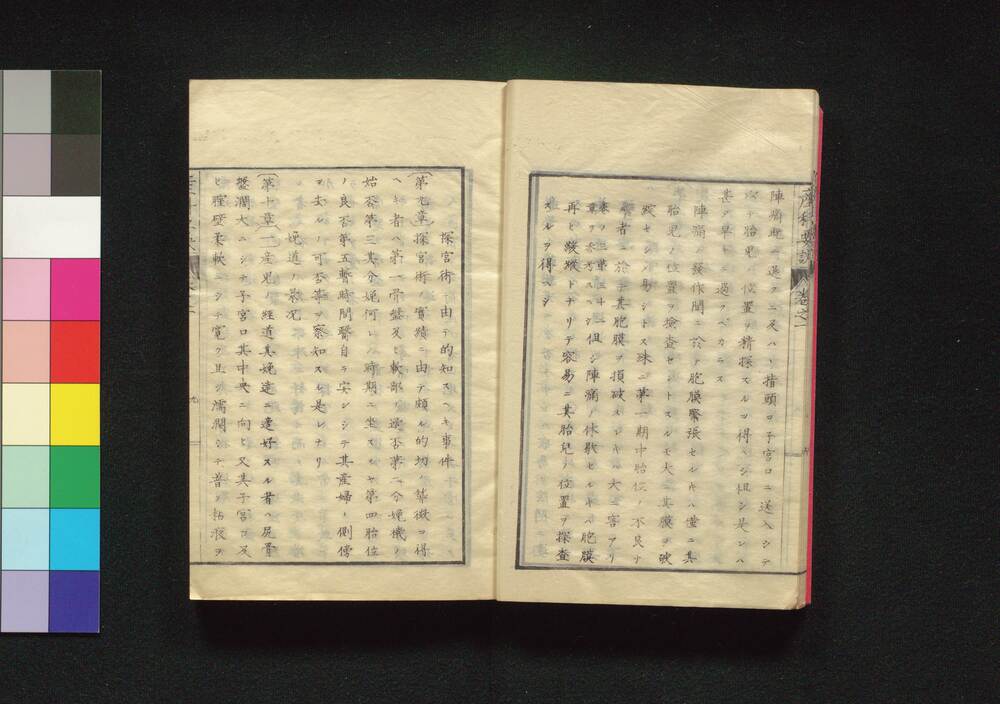 産科要訣 卷之一
陣痛既ニ過クニ及ハヽ指頭ヲ子宮口ニ送入シテ
以テ胎兒ノ位置ヲ精探スルヿ得ヘシ但シ是レハ
甚タ早キニ過クヘカラス
陣痛ノ發作間ニ於テ胞膜緊張セルキハ僅ニ其
胎兒ノ位置ヲ檢査セントスルモ大ニ其膜ヲ破
綻セシメ易シトス殊ニ第一期中胎位ノ不良ナ
者ニ於テ其胞膜ヲ損破スルキハ大ニ害アリ
章ヲ参考スヘシ但シ陣痛ノ休歇セルキハ胞膜
再ヒ皺縱トナリテ容易ニ其胎兒ノ位置ヲ探査
スルヲ得ヘシ
探宮術ニ由テ的知スヘキ事件
(第九章)探宮術ノ實績ニ由テ頗ル的切ノ薬徴ヲ得
ヘキ者ハ第一骨盤及ヒ軟部ノ適否第二分娩機ノ
始否第三其分娩何レノ時期ニ至ルヤ第四胎位
ノ良否第五暫時間醫自ラ安シシテ其産婦ノ側傍
ヲ去ルノ可否等ヲ察知スル是レナリ
娩道ノ景况
(第十章)一産兒ノ經道其娩達ニ適好スル者ハ尻骨
盤濶大ニシテ子宮口其中央ニ向ヒ又其子宮口及
ヒ膣壁柔軟ニシテ寛ク且ツ濡潤シテ音ノ粘液ヲ
九